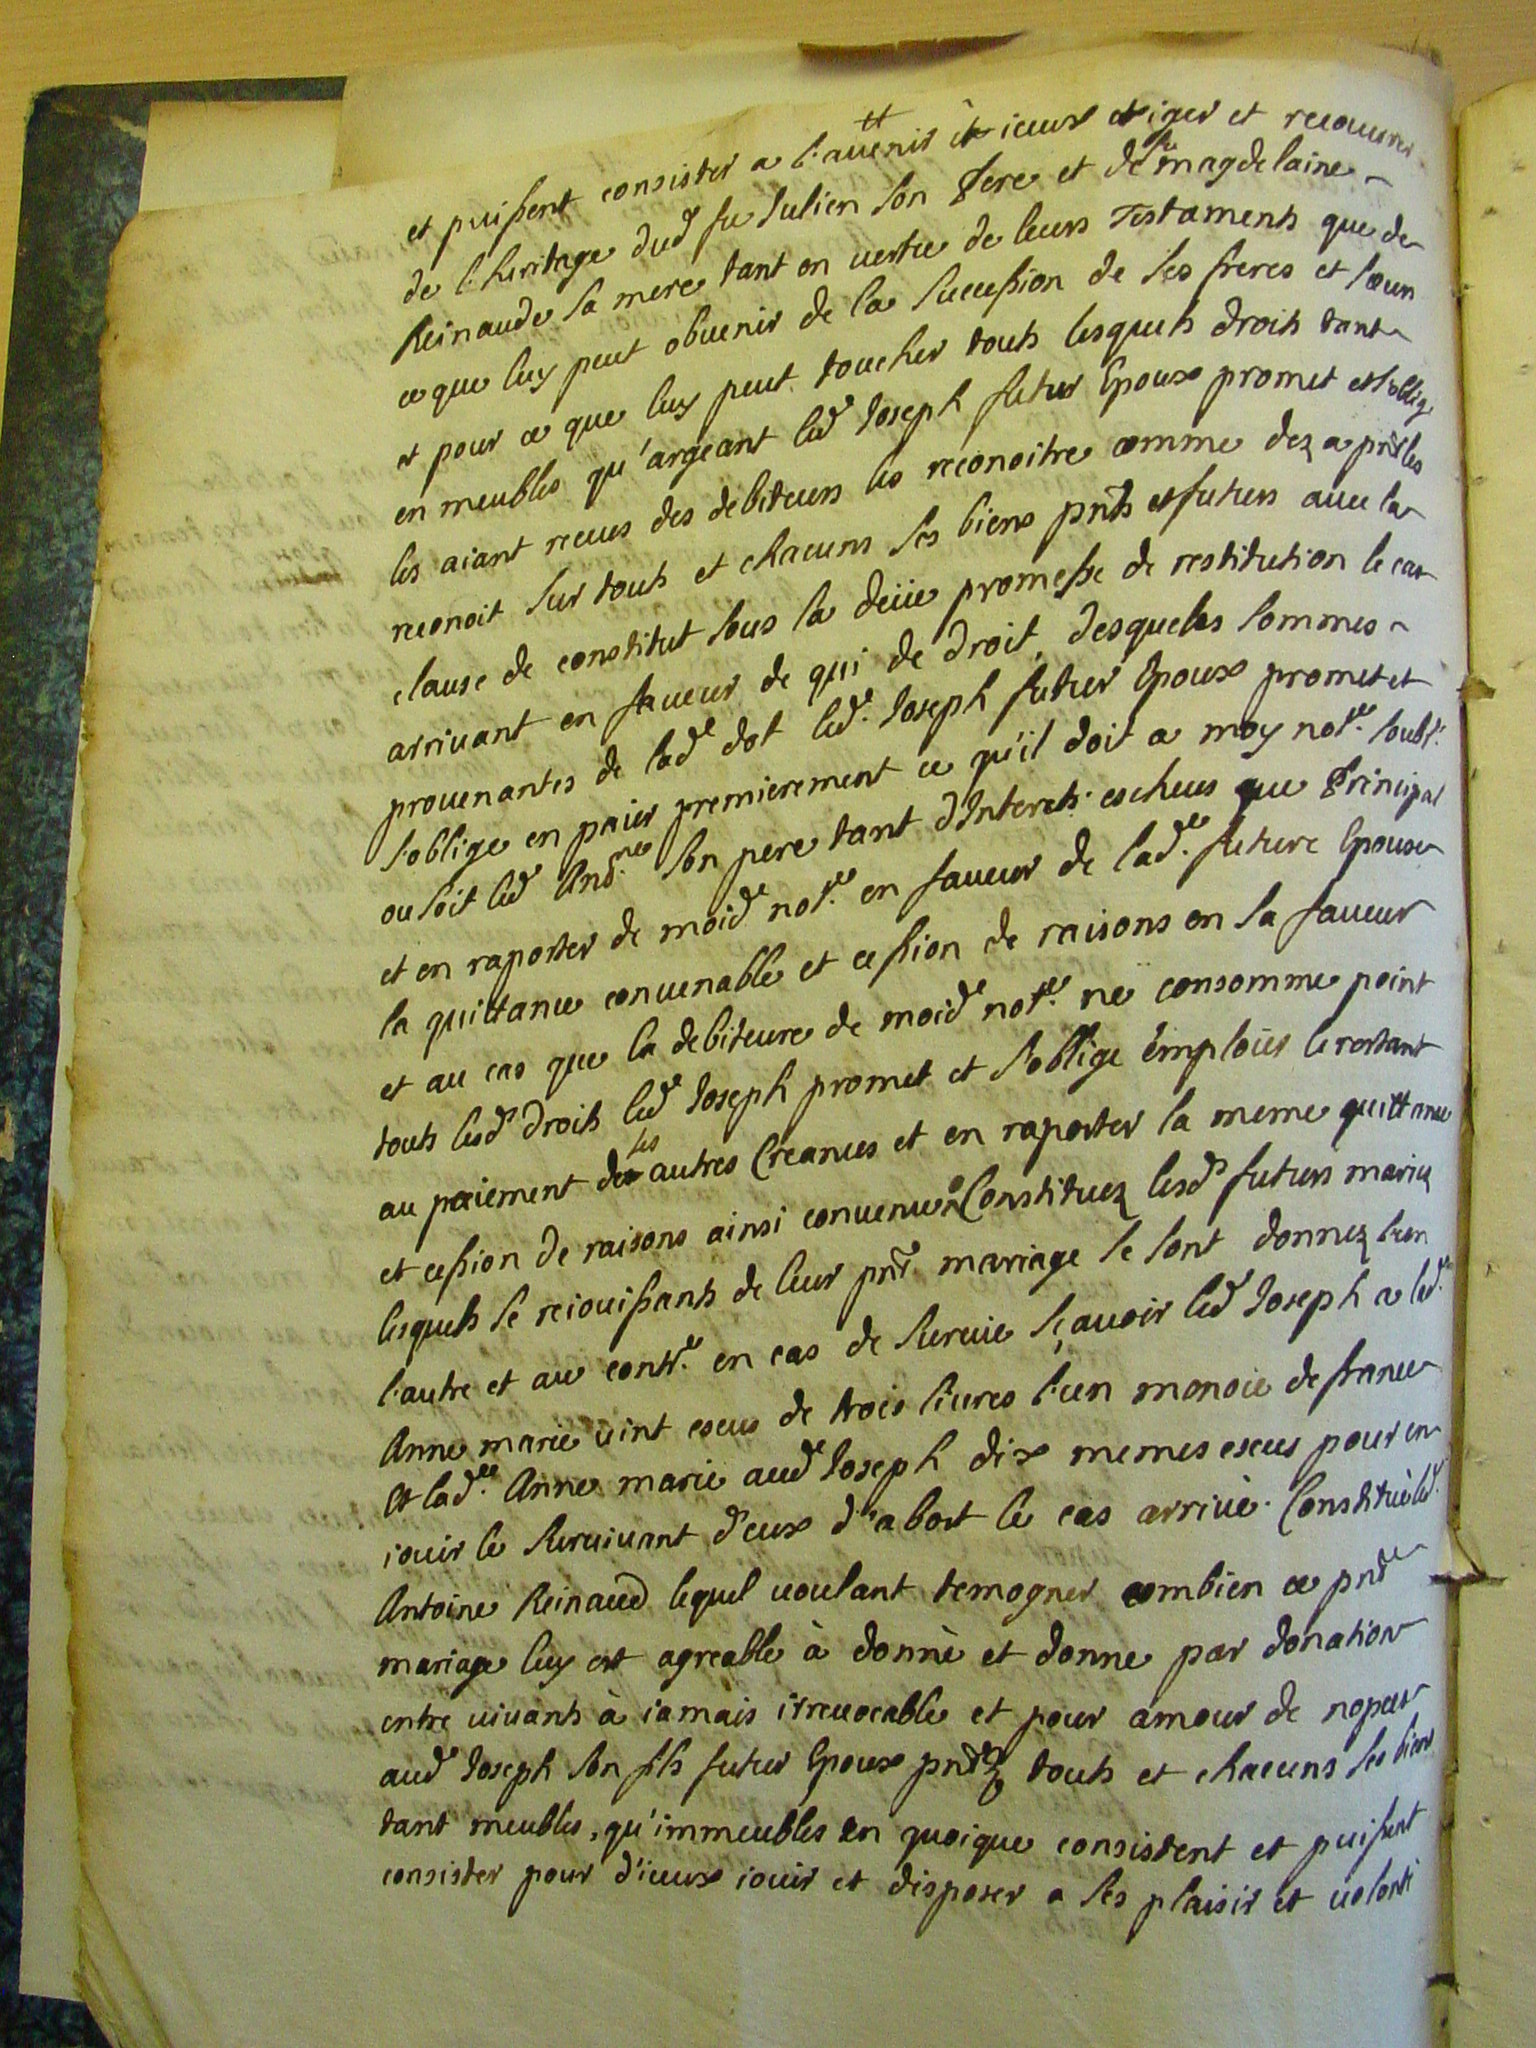 et puissent consister a l'auenir et iceux exiger et recouurer
de l'heritage dud feu Julien son Pere et de magdelaine
Reinaude sa mere tant en uertu de leurs Testaments que de
ce que luy peut obuenir de la succession de ses freres et sœurs
et pour ce que luy peut toucher touts lesquels droits tant
en meubles qu'argeant led Joseph futur Epoux promet et s'oblige
les aiant receus des debiteurs les reconoitre comme dez a pnt les
reconoit sur touts et chacuns ses biens pnts et futurs auec la
clause de constitut sous la deüe promesse de restitution le cas
arriuant en faueur de qui de droit, desqueles sommes
prouenantes de lade dot led. Joseph futur Epoux promet et
s'oblige en paier premierement ce qu'il doit a moy notre soubs.
ou soit led And.ne son pere tant d'Interets escheus que Principal
et en raporter de moid notre en faueur de lade. future Epouse
la quittance conuenable et cession de raisons en sa faueur
et au cas que la debiteure de moid notre ne consomme point
touts lesds droits led Joseph promet et s'oblige emploier le restant
au paiement des ses autres Creances et en raporter la meme quittance
et cession de raisons ainsi conuenu Constituez lesds futurs mariez
lesquels se reiouissants de leur pnt mariage se sont donnez l'un
l'autre et au contre en cas de suruie sçauoir led Joseph a lad.
Anne marie uint escus de trois liures l'un monoie de france
et lade. Anne marie aud Joseph dix memes escus pour en
iouir le suruiuant d'eux d'abort le cas arriué. Constitué led.
Antoine Reinaud lequel uoulant temogner combien ce pnt
mariage luy est agreable à donné et donne par donation
entre uiuants à iamais irreuocable et pour amour de nopces
aud Joseph son fils futur Epoux pnt touts et chacuns ses biens
tant meubles, qu'immeubles en quoique consistent et puissent
consister pour d'iceux iouir et disposer a ses plaisir et uolonté